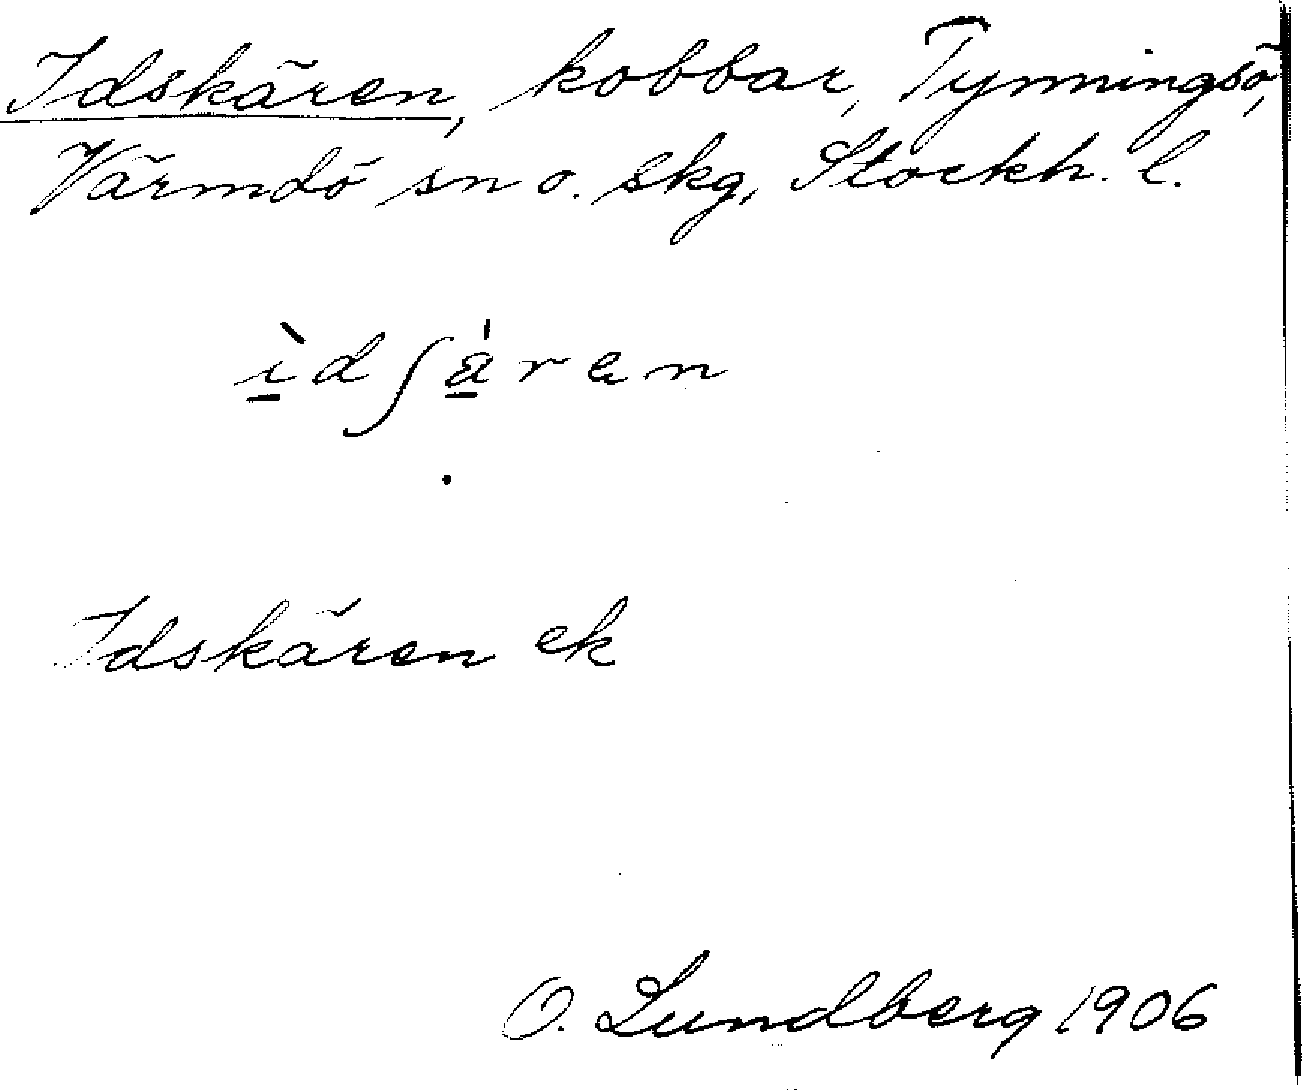 Idskären, kobbar, Tynningsö,
Värmdö sn o. skg, Stockh. l.
ìdʃären
Idskären ek
O. Lundberg 1906